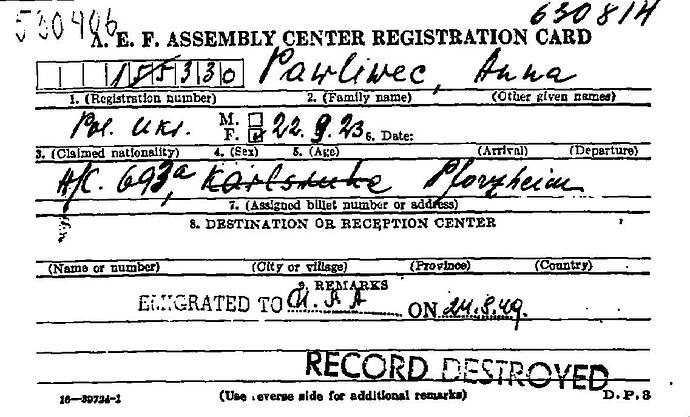 530406 630814
A. E. F. ASSEMBLY CENTER REGISTRATION CARD
155330 Pawliwec, Anna
1. (Registration number) 2. (Family name) (Other given names)
Pol. Ukr. M. F. 22.9.23 6. Date:
3. (Claimed nationality) 4. (Sex) 5. (Age) (Arrival) (Departure)
A/C. 693a, Karlsruhe Pforzheim
7. (Assigned billet number or address)
8. DESTINATION OR RECEPTION CENTER
(Name or number) (City or village) (Province) (Country)
9. REMARKS
EMIGRATED TO U.S.A ON 24.8.49.
RECORD DESTROYED
16—39734-1 (Use reverse side for additional remarks) D.P.3